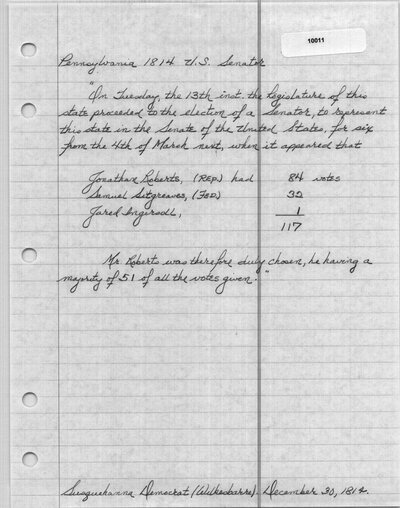 10011
Pennsylvania 1814 U.S. Senator
"On Tuesday, the 13th inst. the legislature of this
state proceeded to the election of a Senator, to represent
this state in the Senate of the United States, for six
from the 4th of March next, when it appeared that
Jonathan Roberts, (REP) had 84 votes
Samuel Sitgreaves, (FED) 32
Jared Ingersoll, 1
117
Mr. Roberts was therefore duly chosen, he having a
majority of 51 of all the votes given."
Susquehanna Democrat (Wilkesbarre). December 30, 1814.